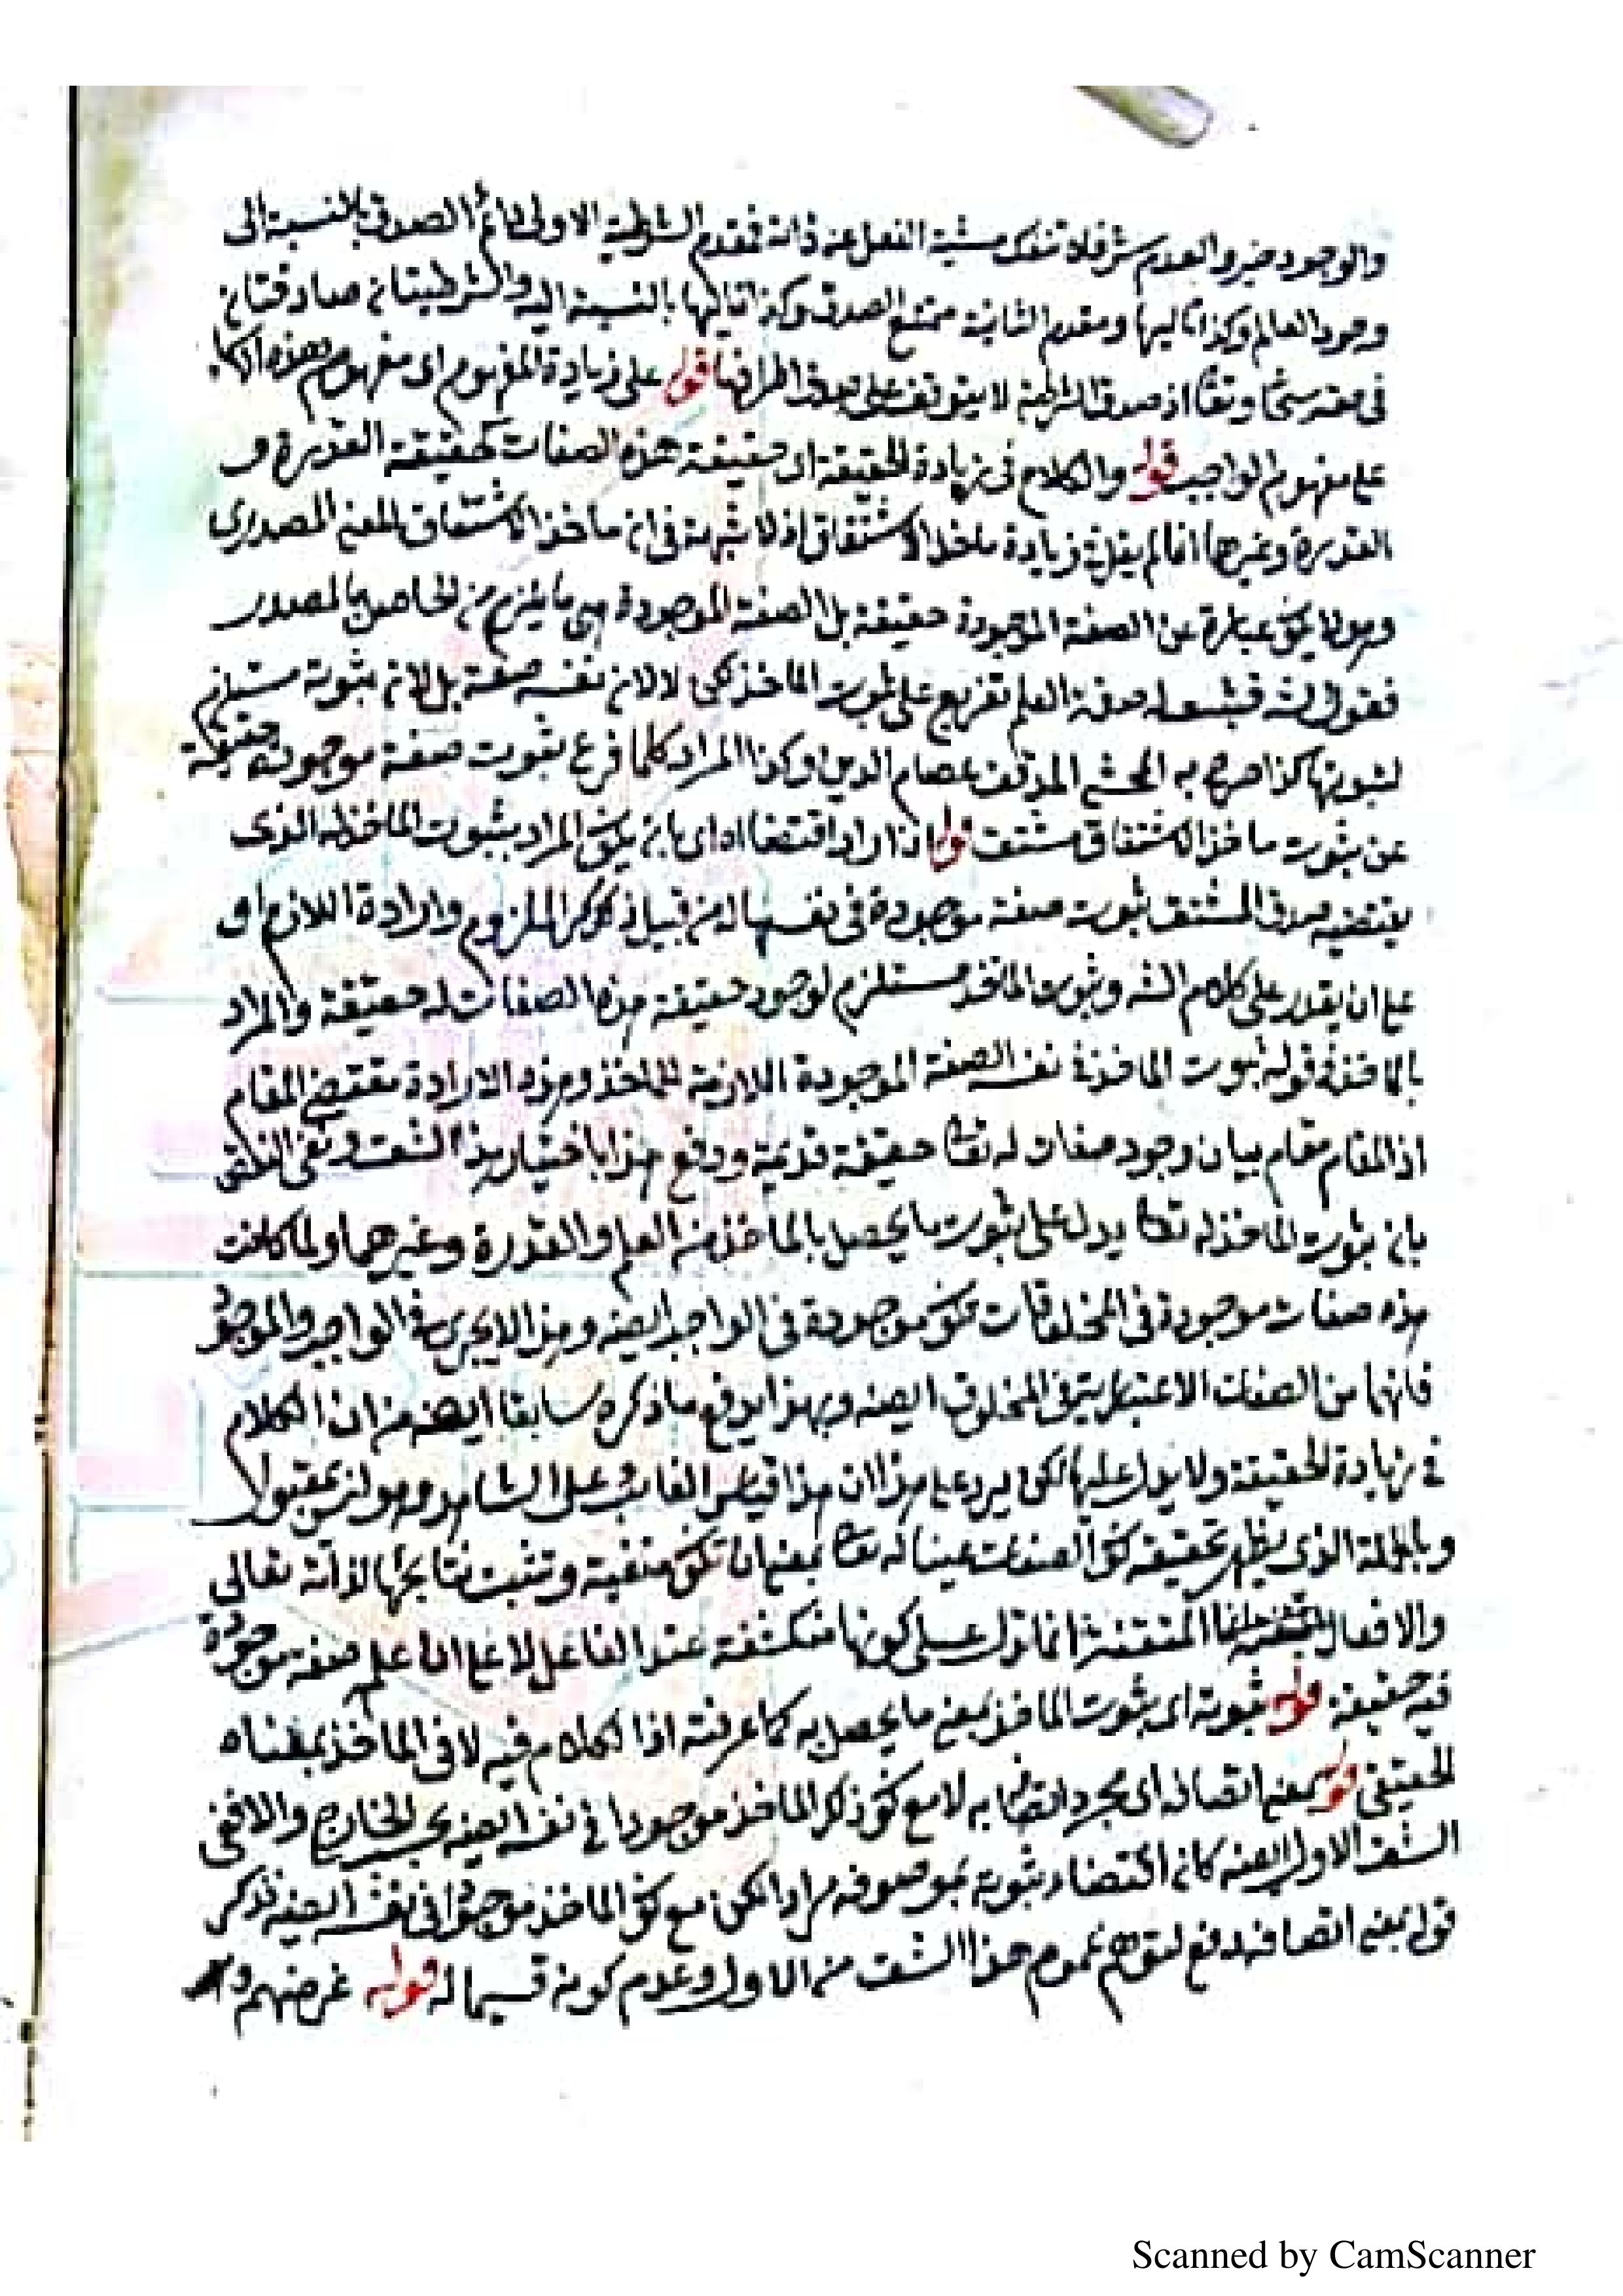 والوجود خير والعدم شر فلا تنفك مشية الفعل عنه ذاته فمقدم الشرطية الاولى دائم الصدق بالنسبة الى
وجود العالم وكذا تاليها ومقدم الثانية ممتنع الصدق وكذا تاليها بالنسبة اليه والشرطيتان صادقتان
في حقه سبحا وتعا اذ صدق الشرطية لا يتوقف على صدق اطرافها قوله على زيادة المفهوم اى مفهوم هذه
على مفهوم الواجب قوله والكلام في زيادة الحقيقة اى حقيقة هذه الصفات كحقيقة القدرة و
القدرة وغيرها انما لم يقل في زيادة ماخذ الاشتقاق اذ لا شبهة في ان ماخذ الاشتقاق المعنى المصدرى
وهو لا يكون عبارة عن الصفة الموجودة حقيقة بل الصفة الموجودة هي ما يلزم من الحاصل بالمصدر
فقول الشه فيثبت له صفة العلم تفريع على ثبوت الماخذ لكن لا لانه نفسه صفة بل لانه ثبوته مستلزم
لثبوتها كذا صرح به المحشى المدقق عصام الدين وكذا المراد كلما فرع ثبوت صفة موجودة حقيقة
عن ثبوت ماخذ الاشتقاق مشتق قوله اذا اراد اقتضاءه اى بان يكون المراد بثبوت الماخذ له الذى
يقتضيه صدق المشتق ثبوت صفة موجودة في نفسها له من قبيل ذكر الملزوم وارادة اللازم او
على ان يقدر على كلام الشه وثبوت الماخذ مستلزم لوجود حقيقة هذه الصفات له حقيقة والمراد
بالماخذ في قوله ثبوت الماخذ في نفسه الصفة الموجودة اللازمة للماخذ وهذه الارادة مقتضى المقام
اذ المقام مقام بيان وجود صفات له تعا حقيقة قديمة ودفع هذا باختيار هذا الشق ونفى
بان ثبوت الماخذ له تعا يدل على ثبوت ما يحصل بالماخذ منه العلم والقدرة وغيرهما ولما كانت
هذه صفات موجودة في المخلوقات تكون موجودة في الواجب ايضه وهذا لا يجرى في الواجب والموجود
فانهما من الصفات الاعتبارية في المخلوق ايضه وبهذا يدفع ما ذكره سابقا ايضه من ان الكلام
في زيادة الحقيقة ولا يدل عليها لكن يرد على هذا ان هذا قياس الغائب على الشاهد وهو ليس بمقبول
وبالجملة الذى يظهر تحقيقه كون الصفات عينا له تعا بمعنى ان تكون منفية وتثبت نتايجها لذاته تعالى
والافعال المتقنة انما تدل على كونها منكشفة عند الفاعل لا على ان العلم صفة موجودة
فيه حقيقة قوله ثبوته اى ثبوت الماخذ بمعنى ما يحصل به كما عرفته اذا الكلام فيه لا في الماخذ بمعناه
الحقيقى قوله بمعنى اتصافه اى مجرد اتصافه به لا مع كون ذكر الماخذ موجودا في نفسه ايضه بحسب الخارج والا ففى
الشق الاول ايضه كان اقتضاء ثبوته بموصوفه مرادا لكن مع كون الماخذ موجودا في نفسه ايضه فذكر
قوله بمعنى اتصافه دفع لتوهم عموم هذا الشق من الاول وعدم كونه قسيما له قوله غرضهم
Scanned by CamScanner